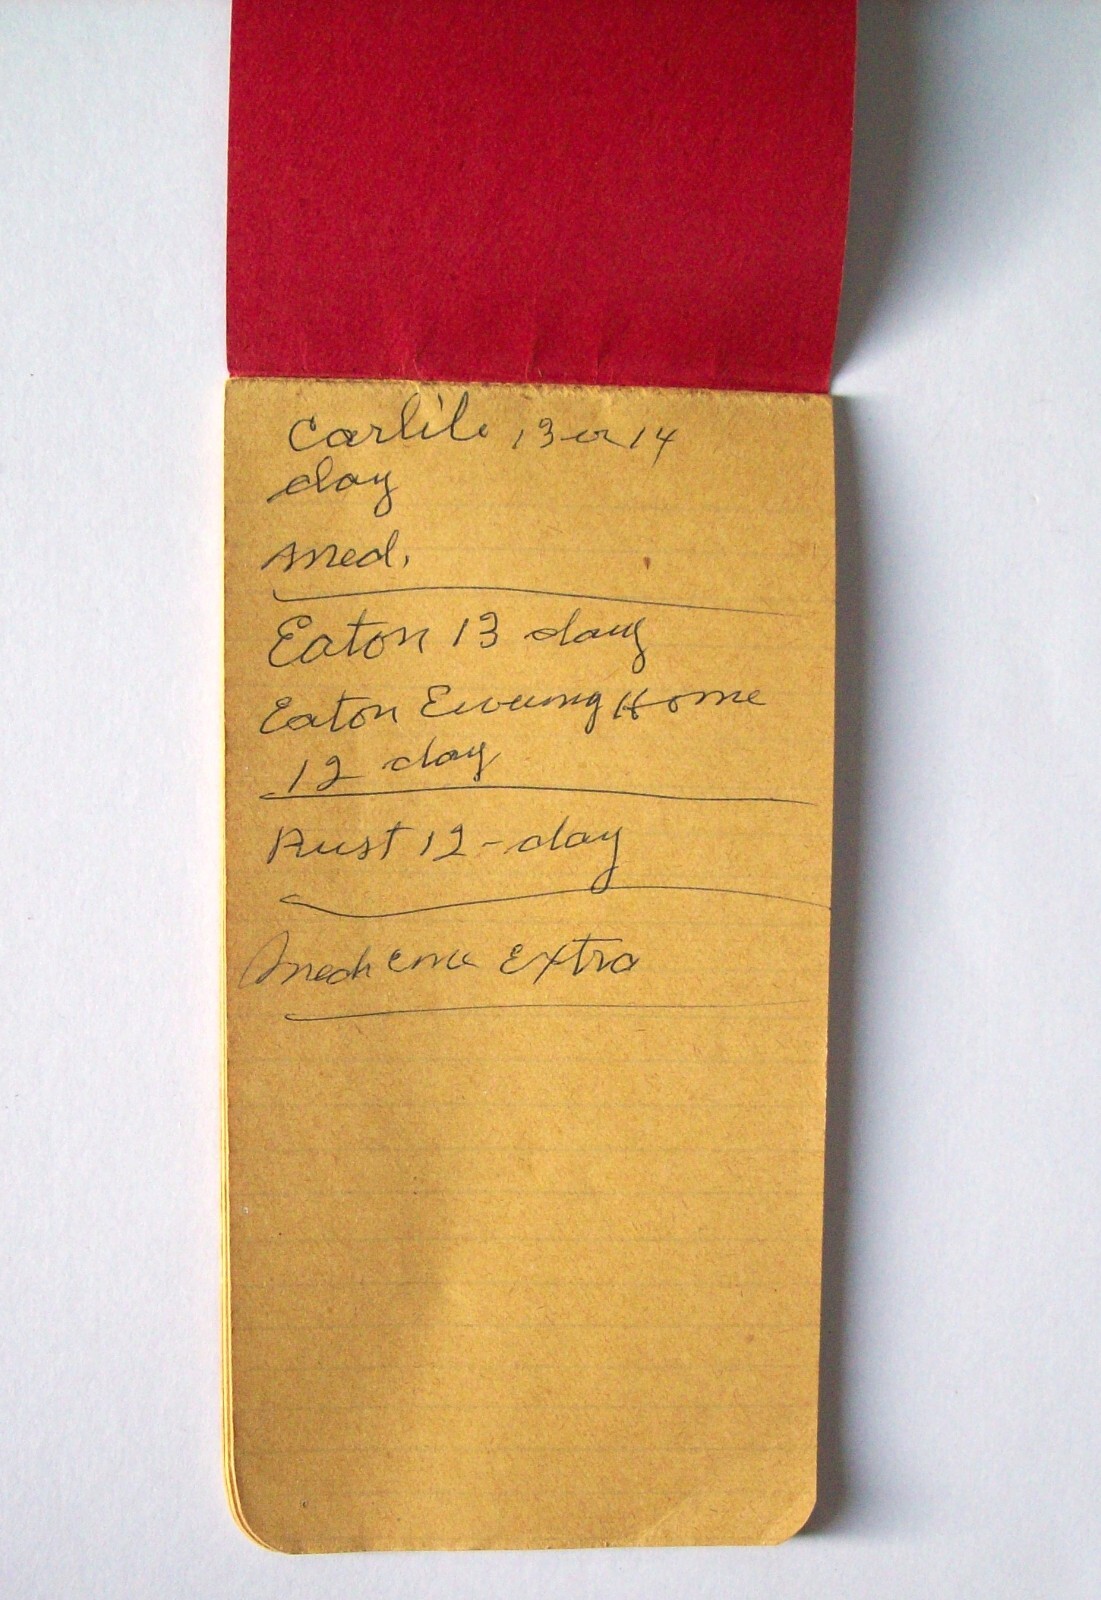 Carlile 13 or 14
day
Med.
Eaton 13 day
Eaton Ewing Home
12 day
Rust 12-day
Extra